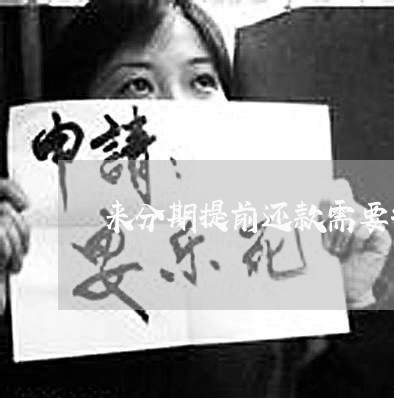 申請：
来分期提前还款需要
安乐死